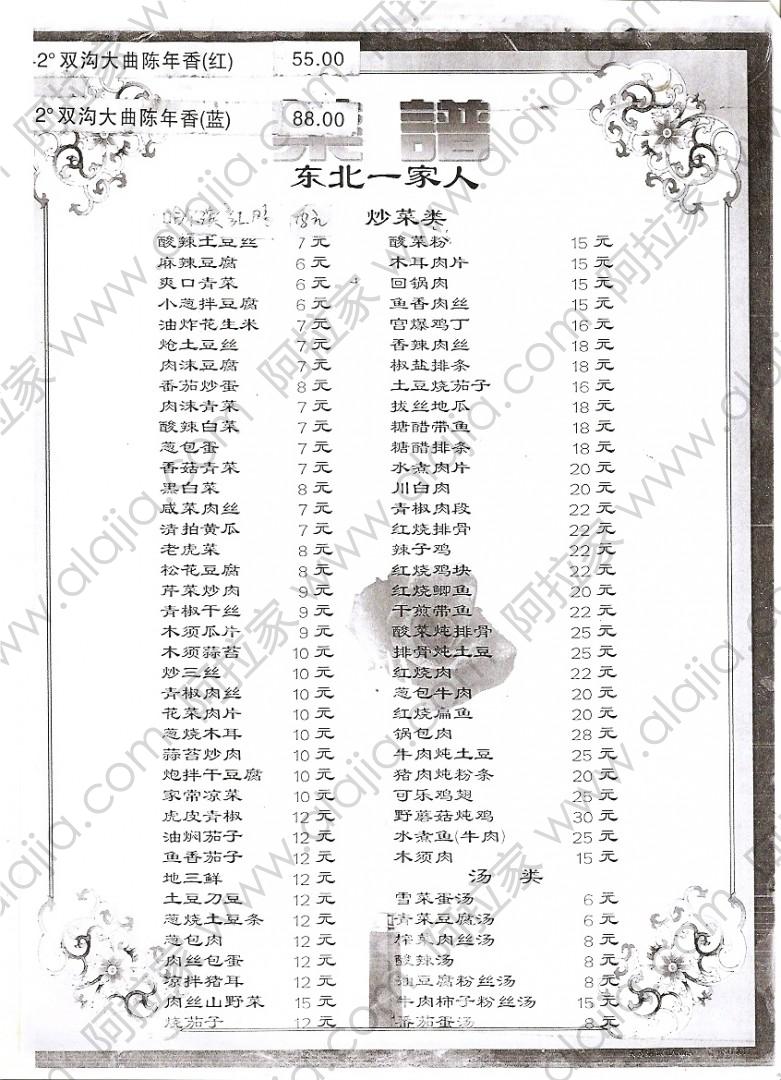 2°双沟大曲陈年香(红) 55.00
2°双沟大曲陈年香(蓝) 88.00
菜 譜
东北一家人
炒菜类
酸辣土豆丝 7元
麻辣豆腐 6元
爽口青菜 6元
小葱拌豆腐 6元
油炸花生米 7元
炝土豆丝 7元
肉沫豆腐 7元
番茄炒蛋 8元
肉沫青菜 7元
酸辣白菜 7元
葱包蛋 7元
香菇青菜 7元
黑白菜 8元
咸菜肉丝 7元
清拍黄瓜 7元
老虎菜 8元
松花豆腐 8元
芹菜炒肉 9元
青椒干丝 9元
木须瓜片 9元
木须蒜苔 10元
炒三丝 10元
青椒肉丝 10元
花菜肉片 10元
葱烧木耳 10元
蒜苔炒肉 10元
炮拌干豆腐 10元
家常凉菜 10元
虎皮青椒 12元
油焖茄子 12元
鱼香茄子 12元
地三鲜 12元
土豆刀豆 12元
葱烧土豆条 12元
葱包肉 12元
肉丝包蛋 12元
凉拌猪耳 12元
肉丝山野菜 15元
烧茄子 12元
酸菜粉 15元
木耳肉片 15元
回锅肉 15元
鱼香肉丝 15元
宫爆鸡丁 16元
香辣肉丝 18元
椒盐排条 18元
土豆烧茄子 16元
拔丝地瓜 18元
糖醋带鱼 18元
糖醋排条 18元
水煮肉片 20元
川白肉 20元
青椒肉段 22元
红烧排骨 22元
辣子鸡 22元
红烧鸡块 22元
红烧鲫鱼 20元
干煎带鱼 22元
酸菜炖排骨 25元
排骨炖土豆 25元
红烧肉 22元
葱包牛肉 20元
红烧扁鱼 20元
锅包肉 28元
牛肉炖土豆 25元
猪肉炖粉条 20元
可乐鸡翅 25元
野蘑菇炖鸡 30元
水煮鱼(牛肉) 25元
木须肉 15元
汤 类
雪菜蛋汤 6元
青菜豆腐汤 6元
榨菜肉丝汤 8元
酸辣汤 8元
油豆腐粉丝汤 8元
牛肉柿子粉丝汤 15元
番茄蛋汤 8元
阿拉家 www.alajia.com